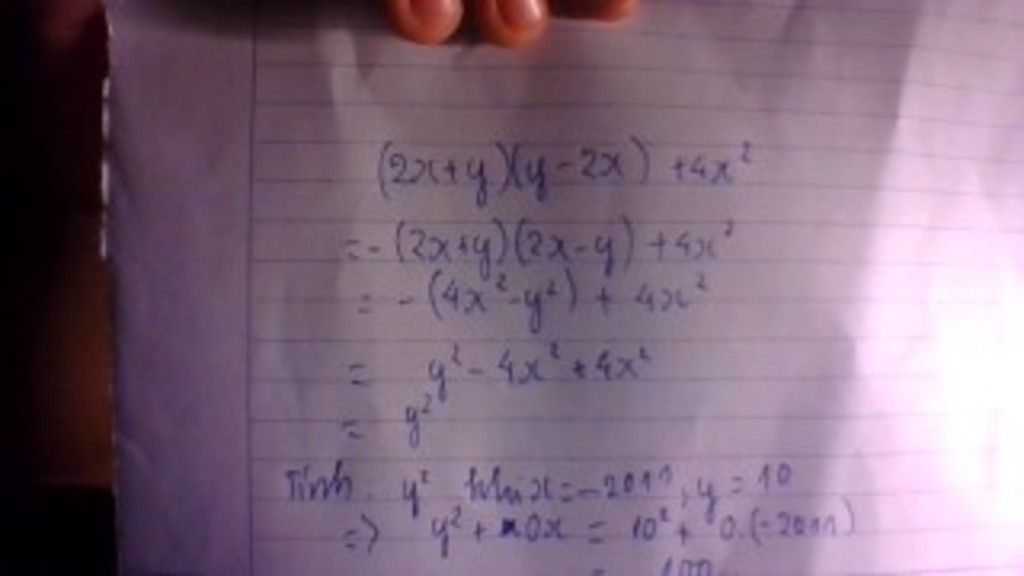 (2x+y)(y-2x) +4x²
=-(2x+y)(2x-y) +4x²
= -(4x²-y²) + 4x²
= y²-4x²+4x²
= y²
Tính y² khi x=-2011, y = 10
=> y²+ 0x = 10²+ 0.(-2011)
= 100